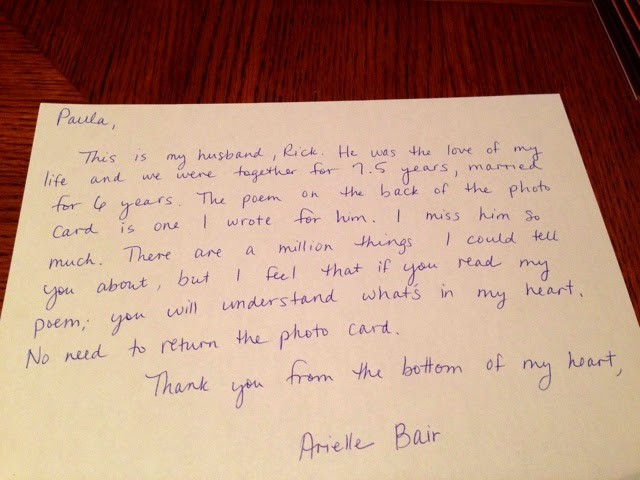 Paula,
This is my husband, Rick. He was the love of my
life and we were together for 7.5 years, married
for 6 years. The poem on the back of the photo
card is one I wrote for him. I miss him so
much. There are a million things I could tell
you about, but I feel that if you read my
poem, you will understand what's in my heart.
No need to return the photo card.
Thank you from the bottom of my heart,
Arielle Bair